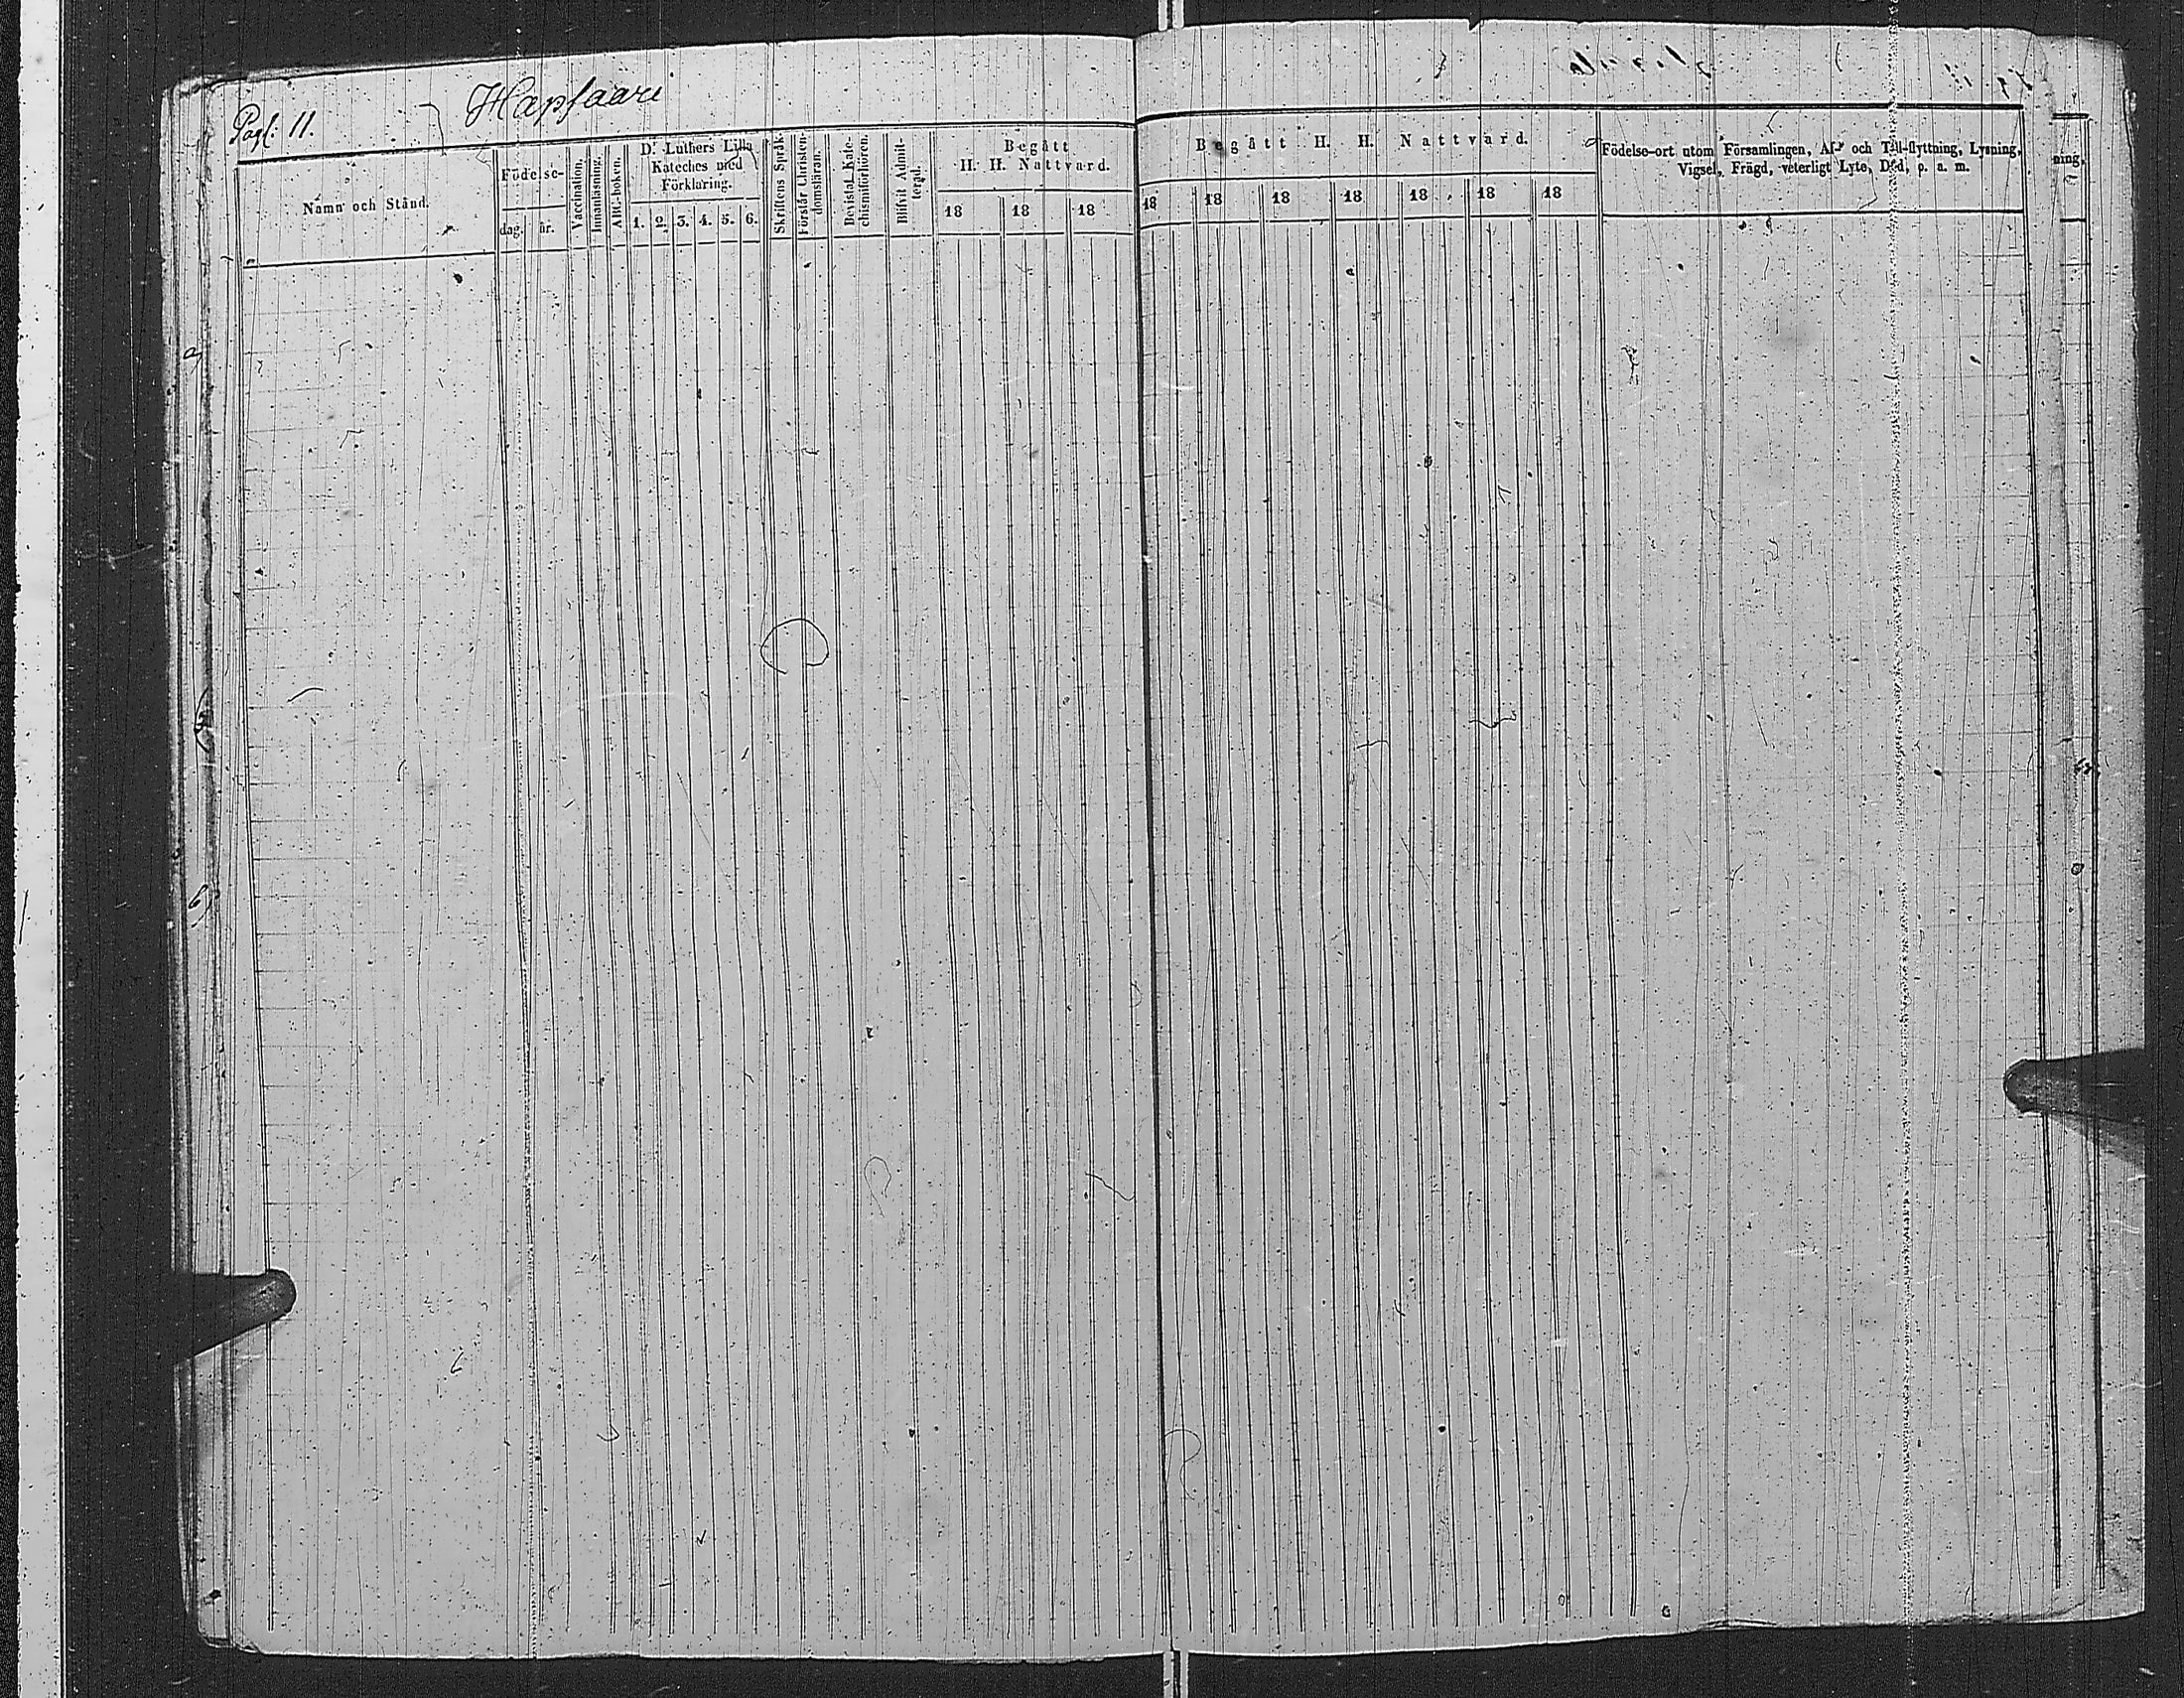 Pagf: 11.
Hapsaari
Namn och Stånd.
Födelse-
dag.
år.
Vaccination.
Innanläsning.
ABC-boken.
D:r Luthers Lilla
Kateches med
Förklaring.
1. 2. 3. 4. 5. 6.
Skriftens Språk.
Förstår Christen-
domsläran.
Bevistat Kate-
chismiförhören.
Blifvit Admit-
terad.
Begått
H. H. Nattvard.
18 18 18
Begått H. H. Nattvard.
18 18 18 18 18 18 18
Födelse-ort utom Församlingen, Af- och Till-flyttning, Lysning,
Vigsel, Frägd, veterligt Lyte, Död, p. a. m.
ning,